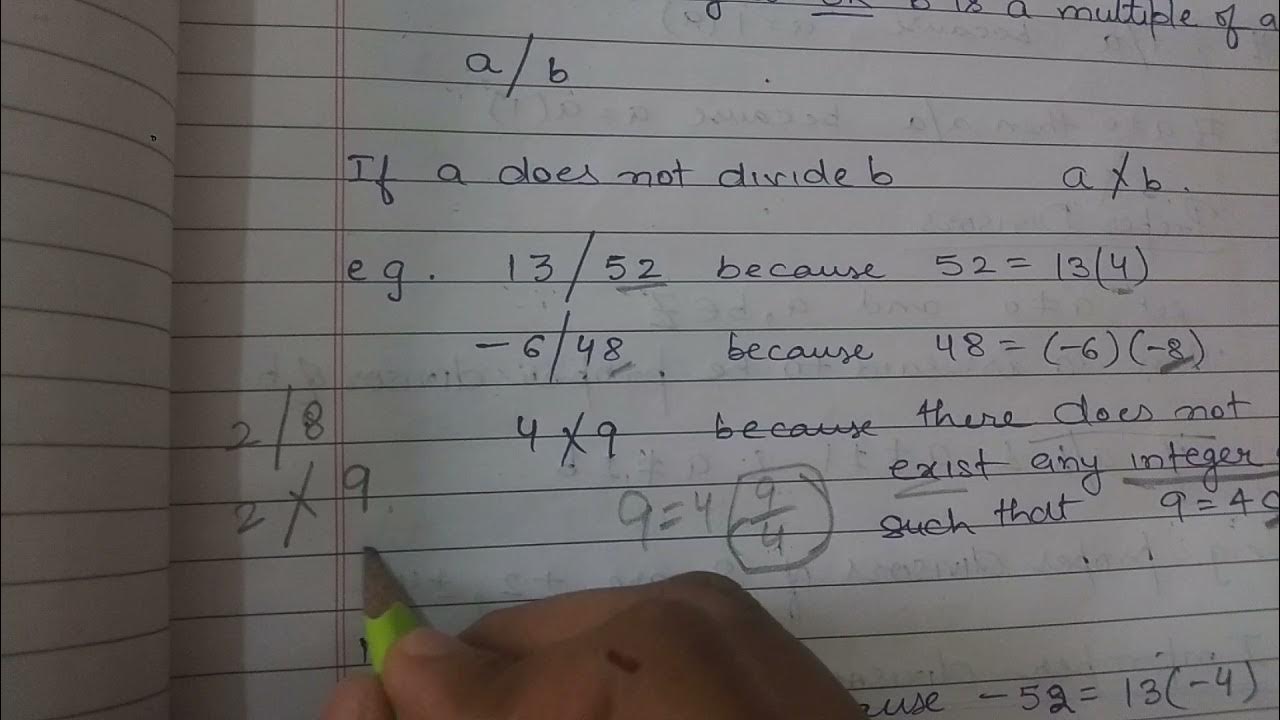 OR b is a multiple of a
a/b
If a does not divide b a∤b.
eg. 13/52 because 52=13(4)
-6/48. because 48=(-6)(-8)
2/8 4∤9 because there does not
exist any integer
2∤9 9=4(9/4) such that 9=4c
-52=13(-4)